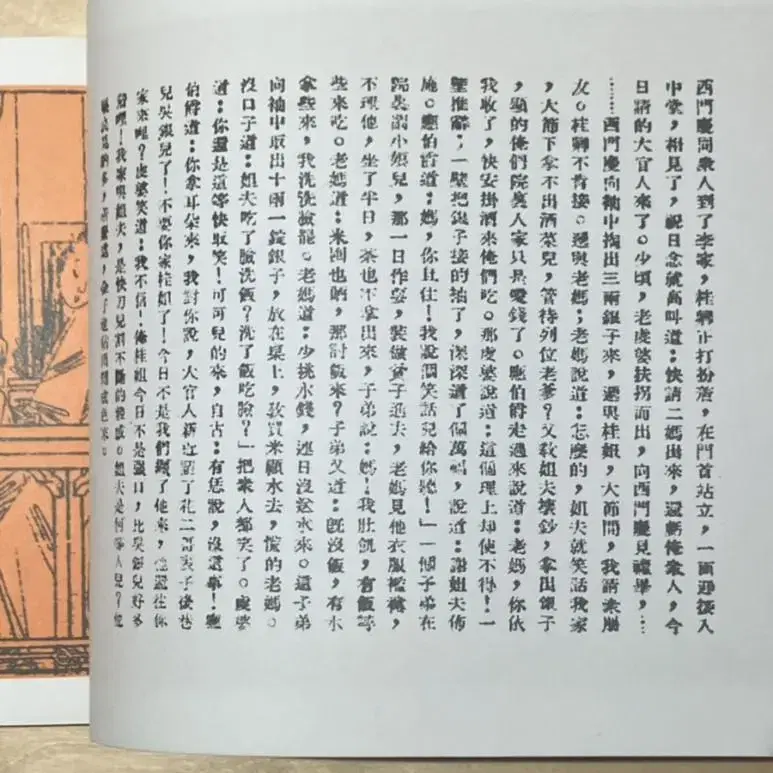 西門慶同衆人到了李家，桂卿正打扮着，在門首站立，一面迎接入
中堂，相見了，祝日念就高叫道：快請二媽出來，還虧俺衆人，今
日請的大官人來了。少頃，老虔婆扶拐而出，向西門慶見禮畢，……
……西門慶向袖中掏出三兩銀子來，遞與桂姐，大節間，我請衆朋
友。桂卿不肯接。遞與老媽；老媽說道：怎麼的，姐夫就笑話我家
，大節下拿不出酒菜兒，管待列位老爹？又敎姐夫壞鈔，拿出銀子
，顯的俺們院裏人家只是愛錢了。應伯爵走過來說道：老媽，你依
我收了，快安排酒來俺們吃。那虔婆說道：這個理上却使不得！一
壁推辭，一壁把銀子接的袖了，深深道了個萬福，說道：謝姐夫佈
施。應伯爵道：媽，你且住！我說個笑話兒給你聽！」一個子弟在
院裏嫖小娘兒，那一日作耍，裝做貧子進去，老媽見他衣服襤褸，
不理他，坐了半日，茶也不拿出來，子弟說：媽！我肚飢，有飯尋
些來吃。老媽道：米囤也晒，那討飯來？子弟又道：旣沒飯，有水
拿些來，我洗洗臉罷。老媽道：少挑水錢，連日沒送水來。這子弟
向袖中取出十兩一錠銀子，放在桌上，敎買米顧水去，慌的老媽。
沒口子道：姐夫吃了臉洗飯？洗了飯吃臉？」把衆人都笑了。虔婆
道：你還是這等快取笑！可可兒的來，自古：有恁說，沒這事！應
伯爵道：你拿耳朵來，我對你說，大官人新近請了花二哥表子後巷
兒吳銀兒了！不要你家桂姐了！今日不是我們纏了他來，他還往你
家來哩？虔婆笑道：我不信！俺桂姐今日不是強口，比吳銀兒好多
着哩！我家與姐夫，是快刀兒割不斷的親戚。姐夫是何等人兒？他
眼裏見的多，着緊處，金子也估出個成色來。